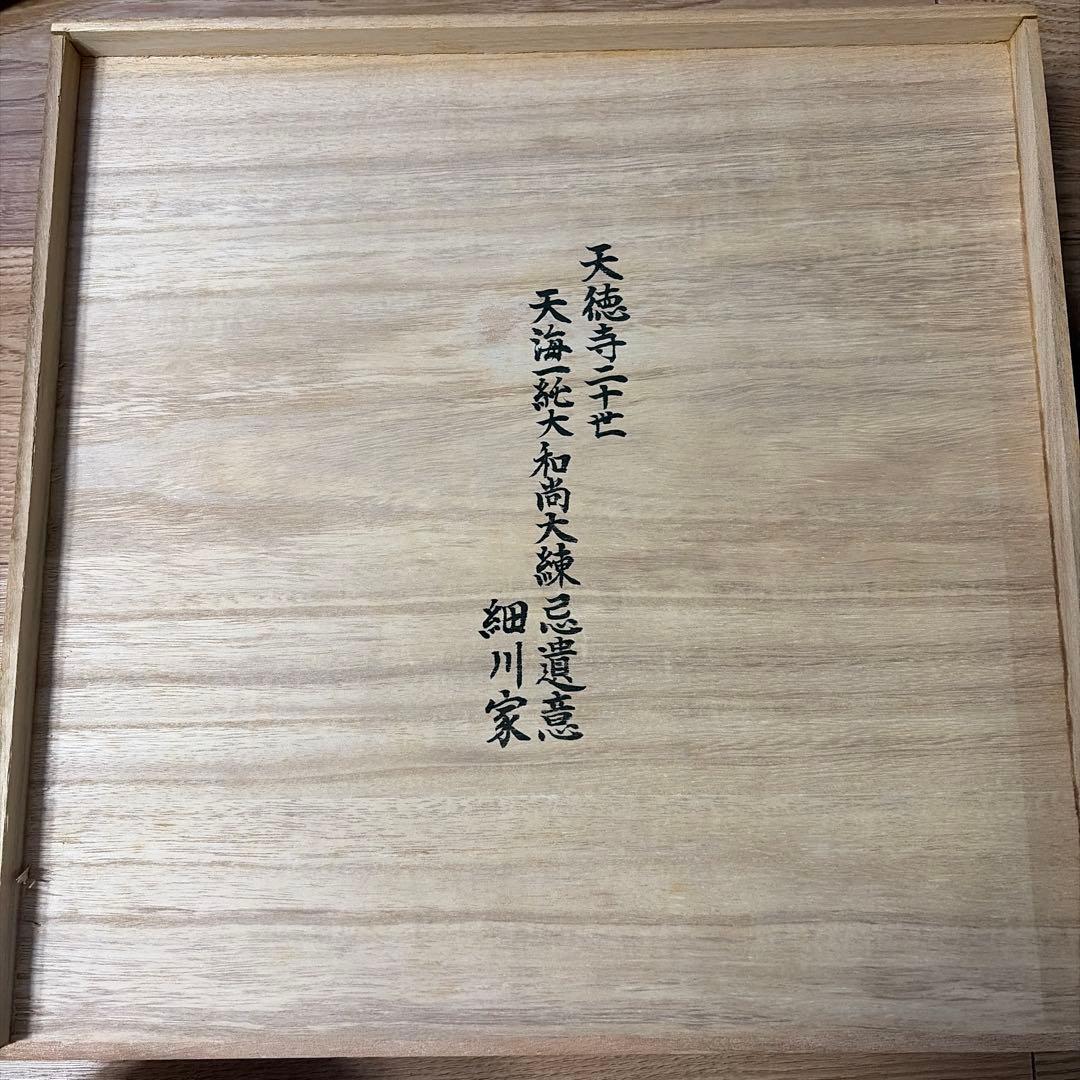 天徳寺二十世
天海一純大和尚大練忌遺意
細川家